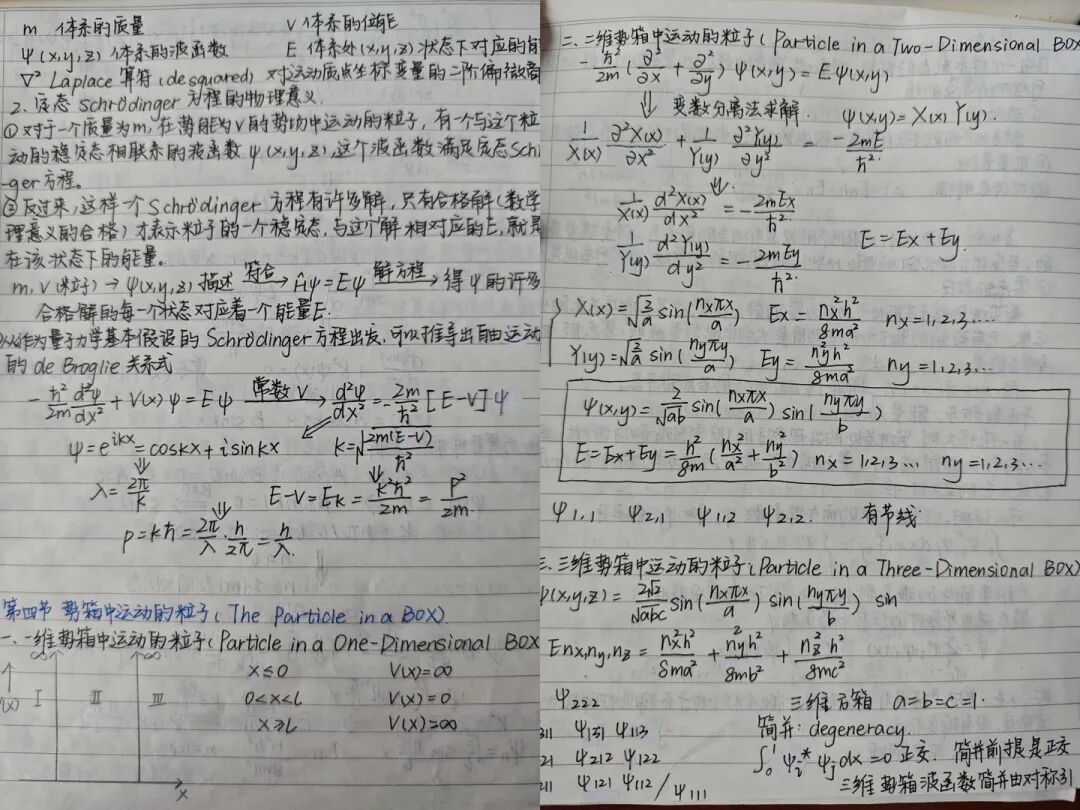 m 体系的质量 V 体系的位能
ψ(x,y,z) 体系的波函数 E 体系处(x,y,z)状态下对应的能
∇² Laplace 算符(desquared) 对运动质点坐标变量的二阶偏微商
2、定态 Schrödinger 方程的物理意义.
①对于一个质量为m,在势能为V的势场中运动的粒子,有一个与这个粒
动的稳定态相联系的波函数 ψ(x,y,z),这个波函数满足定态Sch
-ger方程。
②反过来,这样一个Schrödinger 方程有许多解,只有合格解(数学
理意义的合格)才表示粒子的一个稳定态,与这个解相对应的E,就是
在该状态下的能量。
m,V(粒子)→ψ(x,y,z)描述 符合→ Ĥψ=Eψ 解方程→ 得ψ的许多
合格解的每一个状态对应着一个能量E.
从作为量子力学基本假设的 Schrödinger 方程出发,可以推导出自由运动
的 de Broglie 关系式
-ħ²/2m d²ψ/dx² + V(x)ψ = Eψ 常数V→ d²ψ/dx² = -2m/ħ² [E-V]ψ
ψ=e^{ikx}=coskx+isinkx k=√(2m(E-V)/ħ²)
λ=2π/k E-V=Ek=k²ħ²/2m=p²/2m
p=kħ=2π/λ·h/2π=h/λ.
第四节 势箱中运动的粒子(The Particle in a BOX).
一、一维势箱中运动的粒子(Particle in a One-Dimensional BOX
∞ ∞ x≤0 V(x)=∞
(x) I II III 0<x<l V(x)=0
x≥l V(x)=∞
x
二、二维势箱中运动的粒子(Particle in a Two-Dimensional BOX
-ħ²/2m (∂²/∂x + ∂²/∂y) ψ(x,y)=Eψ(x,y)
⇓ 变数分离法求解. ψ(x,y)=X(x)Y(y).
1/X(x) ∂²X(x)/∂x² + 1/Y(y) ∂²Y(y)/∂y² = -2mE/ħ²
⇓
1/X(x) d²X(x)/dx² = -2mEx/ħ²
1/Y(y) d²Y(y)/dy² = -2mEy/ħ² E=Ex+Ey.
X(x)=√(2/a) sin(nxπx/a) Ex=nx²h²/8ma² nx=1,2,3…
Y(y)=√(2/a) sin(nyπy/a) Ey=ny²h²/8ma² ny=1,2,3…
ψ(x,y)=2/√ab sin(nxπx/a) sin(nyπy/b)
E=Ex+Ey=h²/8m (nx²/a²+ny²/b²) nx=1,2,3… ny=1,2,3…
ψ1,1 ψ2,1 ψ1,2 ψ2,2. 有节线.
三、三维势箱中运动的粒子(Particle in a Three-Dimensional BOX)
ψ(x,y,z)=2√2/√abc sin(nxπx/a) sin(nyπy/b) sin
Enx,ny,nz=nx²h²/8ma²+ny²h²/8mb²+nz²h²/8mc²
ψ222 三维方箱 a=b=c=1.
311 ψ131 ψ113 简并: degeneracy.
21 ψ212 ψ122 ∫₀¹ψi*ψjdx=0 正交. 简并前提是正交
211 ψ121 ψ112 / ψ111 三维势箱波函数简并由对称引